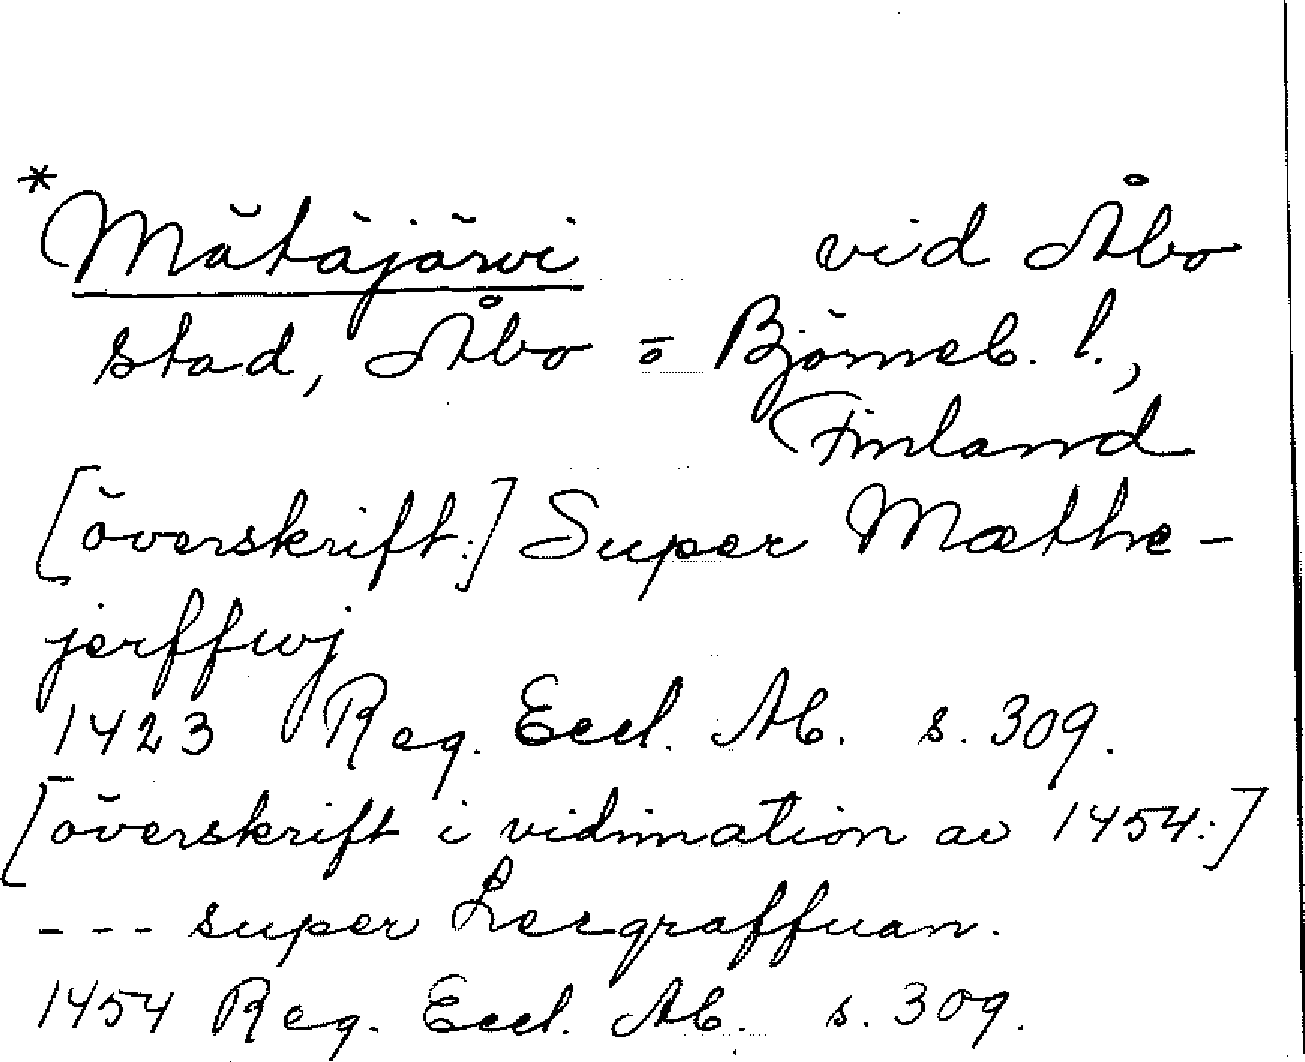 *Mätäjärvi vid Åbo
stad, Åbo o Björneb. l.,
Finland
[överskrift:] Super Mæthe-
jerffwj
1423 Reg. Eccl. Ab. s. 309.
[överskrift i vidimation av 1454:]
--- super Leergraffuan.
1454 Reg. Eccl. Ab. s. 309.